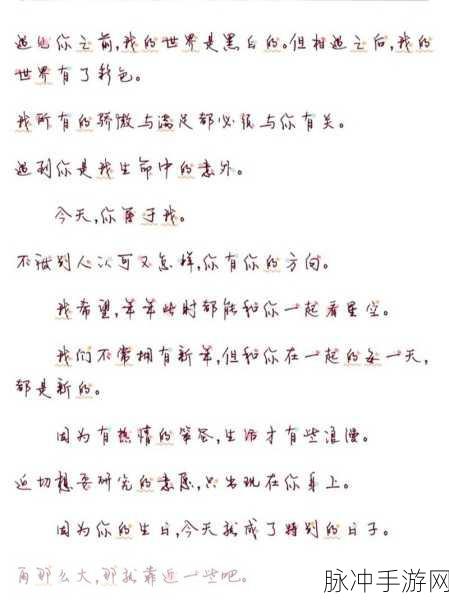 遇见你之前,我的世界是黑白的。但相遇之后,我的
世界有了彩色。
我所有的骄傲与满足都必须与你有关。
遇到你是我生命中的意外。
今天,你属于我。
不被别人认可又怎样,你有你的方向。
我希望,年年此时都能和你一起看星空。
我们不常拥有新年,但和你在一起的每一天,
都是新的。
因为有热情的笨爸,生活才有些浪漫。
迫切想要研究的意愿,只出现在你身上。
因为你的生日,今天就成了特别的日子。
雨那么大,那就靠近一些吧。
脉冲手游网